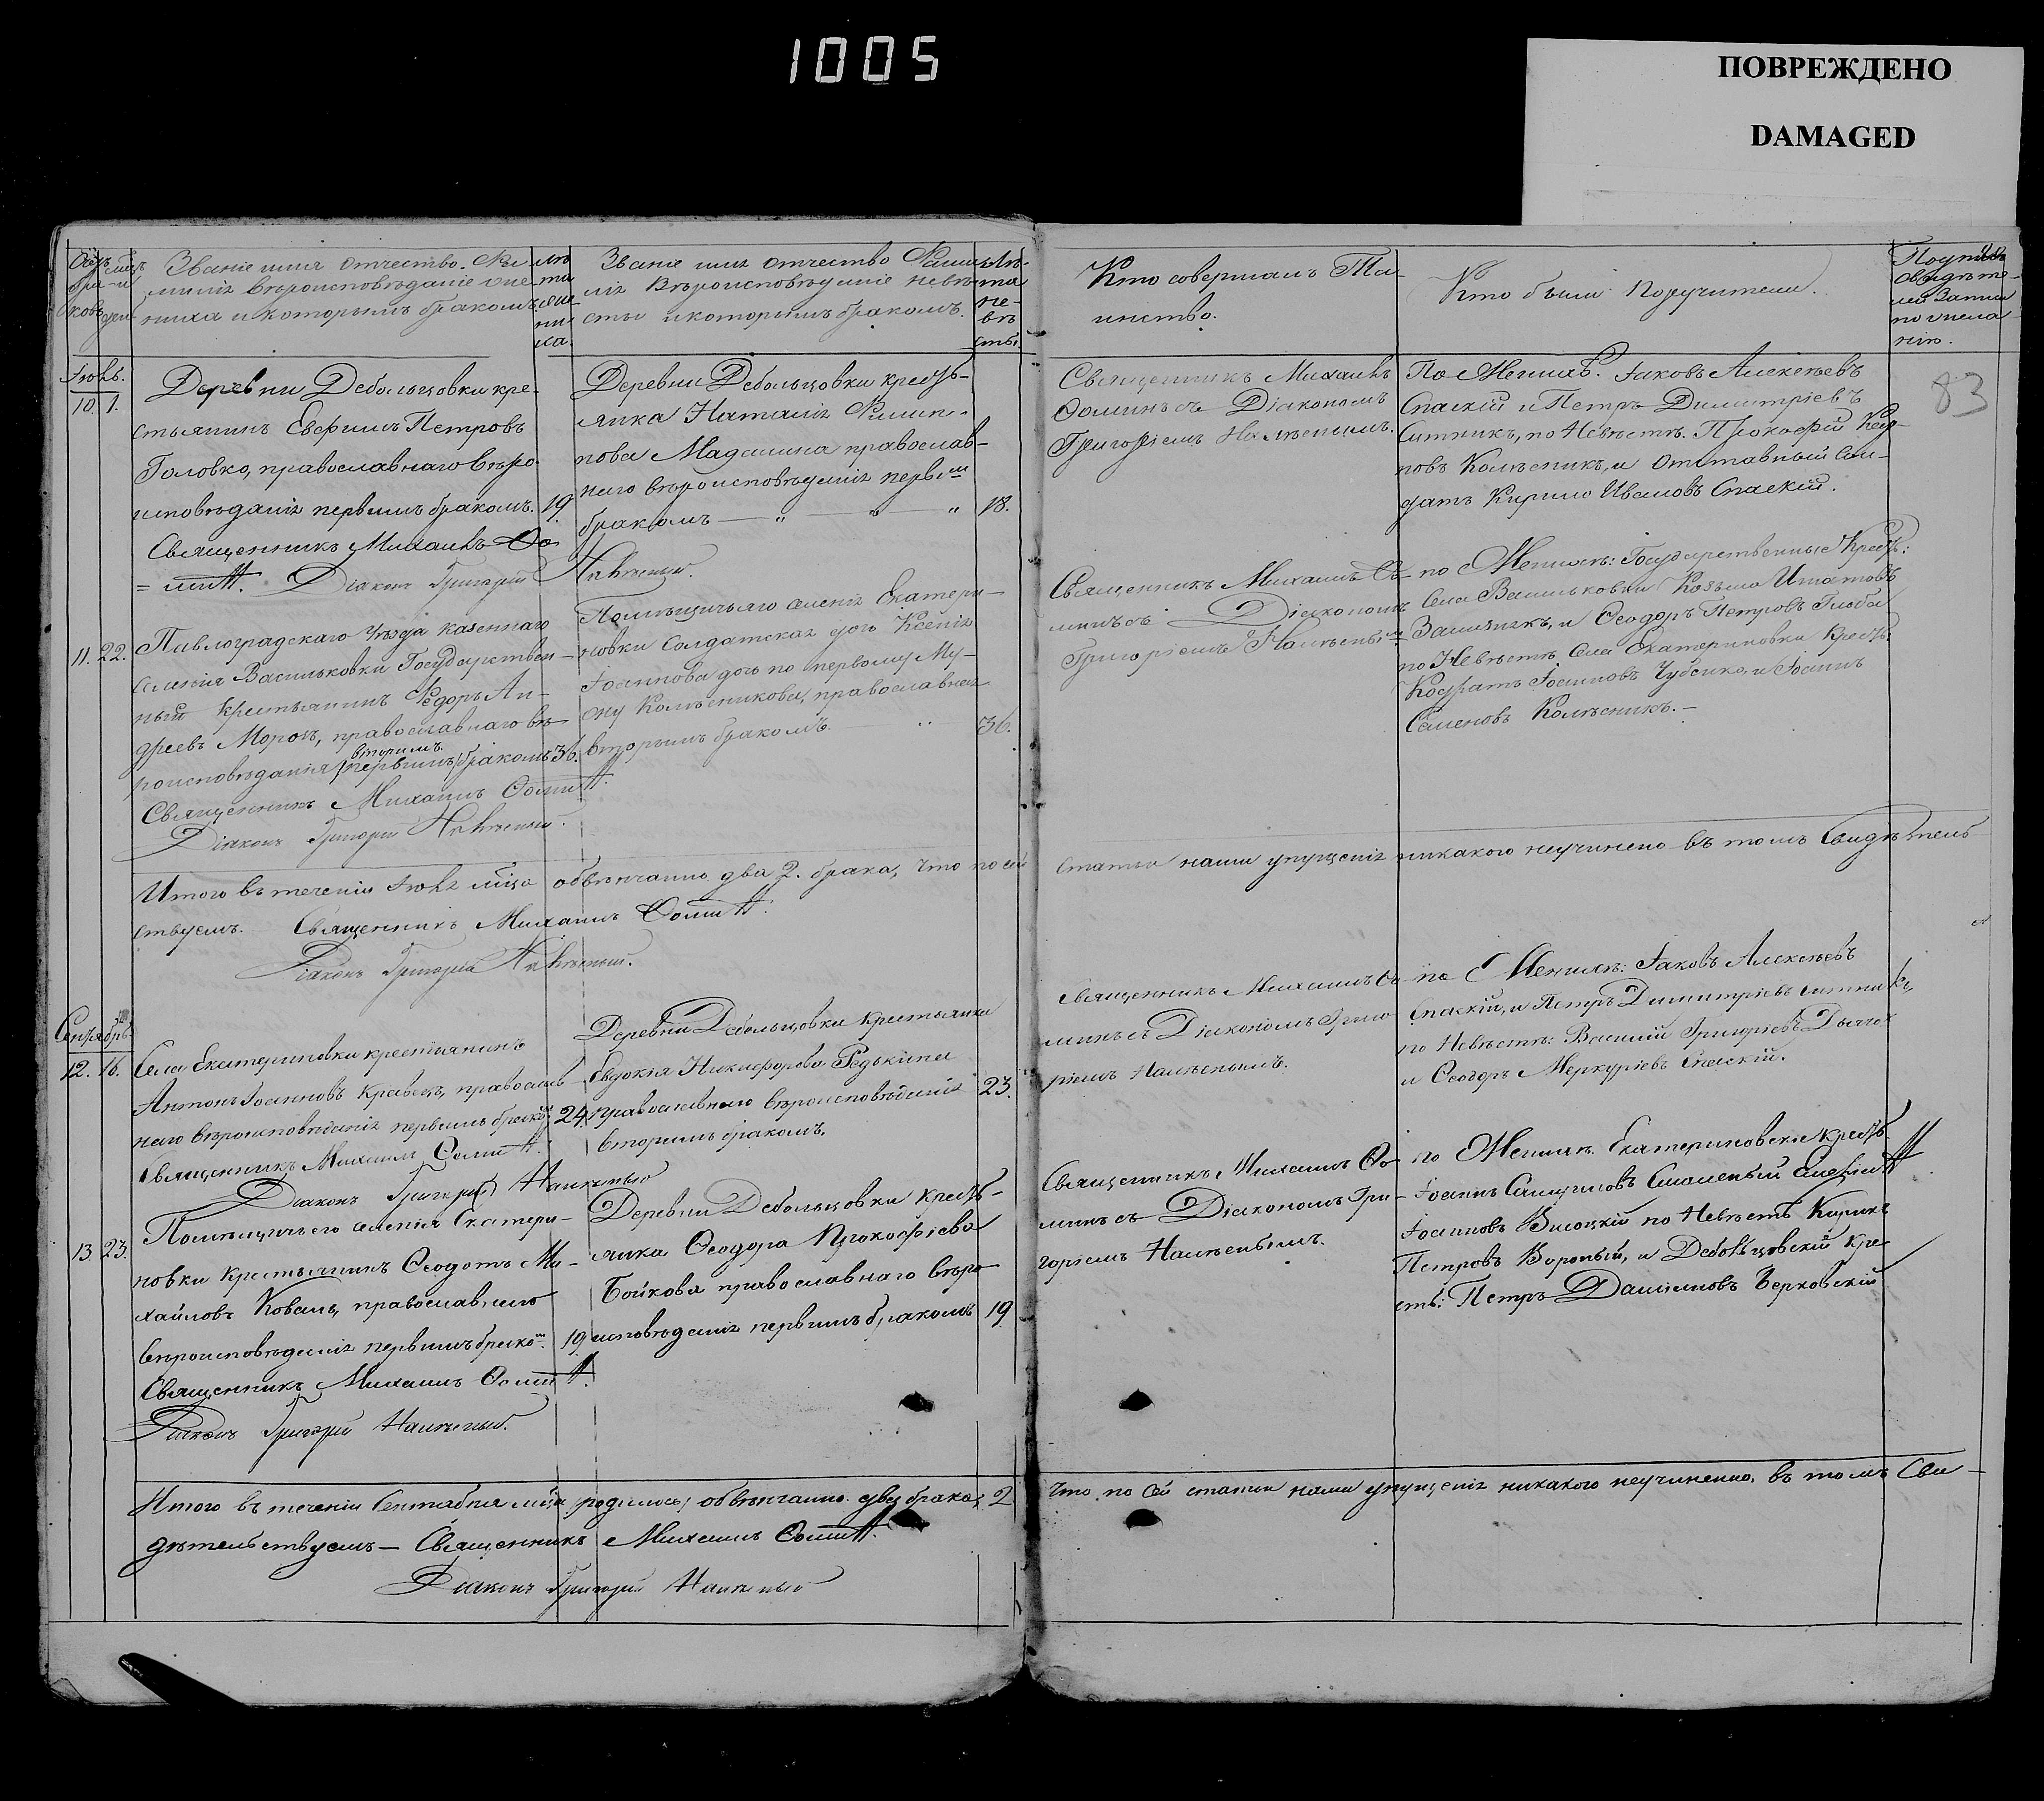 1005
ПОВРЕЖДЕНО
DAMAGED
Званіе имя отчество. Фа
миліz вѣроисповѣданіе же
ниха и которымъ бракомъ.
лѣ
та
же
ни
ха.
Званіе имz отчество Фами
ліz вѣроисповѣданіе невѣ
сты и которымъ бракомъ.
лѣ-
та
не-
вѣ
сты.
Кто совершалъ Та-
инство.
Кто были поручители.
83
Іюль.
10. 1.
Деревни Дебольцовки кре-
стьянинъ Евфимъ Петровъ
Головко, православнаго вѣро
исповѣданіz первымъ бракомъ. 19.
Священникъ Михаилъ Фо
= минъ. Діаконъ Григорій
Деревни Дебольцовки кресть-
янка Наталіz Филип-
пова Мадалина православ-
наго вѣроисповѣданіz первымъ
бракомъ — „ — „ „ 18.
Священникъ Михаилъ
Фоминъ съ Діакономъ
Григоріемъ Налѣпымъ.
По Женихѣ. Іаковъ Алексѣевъ
Спаскій и Петръ Димитріевъ
Ситникъ, по Невѣстѣ. Прокофій
повъ Колѣсникъ, и отставный Сол-
датъ Кирило Ивановъ Спаскій.
11. 22.
Павлоградскаго Уѣзда казеннаго
селенія Васильковки Государствен-
ный крестьянинъ Федоръ Ан-
дреевъ Морозъ, православнаго вѣ
вторымъ
роисповѣданія /первымъ/ бракомъ 36.
Священникъ Михаилъ Фоминъ.
Діаконъ Григорій
Помѣщичьяго селеніz Екатери-
новки Солдатскаz дочь Ксеніz
Іоаннова дочь по первому Му-
жу Колѣсникова, православнаz
вторымъ бракомъ. „ 36.
Священникъ Михаилъ Фо
минъ съ Діакономъ
Григоріемъ Налѣпымъ
по Женихѣ: Государственные Кресть:
Села Васильковки Козьма Игнатовъ
и Феодоръ Петровъ Глоба
по Невѣстѣ Села Екатериновки Кресть:
Кодратъ Іоанновъ Чубенко, и Іоаннъ
Семеновъ Колѣсникъ. —
Итого въ теченіи Іюлz мѣца обвѣнчанно два 2. брака, что по сей
статьи нами упущеніz никакого неучинено въ томъ Свидѣтель
ствуемъ. Священникъ Михаилъ Фоминъ.
Діаконъ Григорій
Сентябрь
12. 16.
Села Екатериновки крестіянинъ
Антонъ Іоанновъ Кравецъ, православ
наго вѣроисповѣданіz первымъ бракомъ 24.
Священникъ Михаилъ Фоминъ.
Діаконъ Григорій Налѣпый
Деревни Дебольцовки Крестьянка
Евдокія Никифорова Редькина
православнаго вѣроисповѣданіz 23.
вторымъ бракомъ.
Священникъ Михаилъ Фо
минъ съ Діакономъ Григо
ріемъ Налѣпымъ.
по Женихѣ: Іаковъ Алексѣевъ
Спаскій, и Петръ Димитріевъ Ситникъ,
по Невѣстѣ: Василій Григоріевъ
и Феодоръ Меркуріевъ Спаскій.
13. 23.
Помѣщичьего селенія Екатери-
новки Крестьянинъ Феодотъ Ми-
хайловъ Коваль, православнаго
вѣроисповѣданіz первымъ бракомъ. 19.
Священникъ Михаилъ Фоминъ.
Діаконъ Григорій Налѣпый.
Деревни Дебольцовки Кресть-
янка Феодора Прокофіева
Бойкова православнаго вѣро
исповѣданіz первымъ бракомъ 19.
Священникъ Михаилъ Фо-
минъ съ Діакономъ Гри-
горіемъ Налѣпымъ.
по Женихѣ. Екатериновскіе Кресть
Іоаннъ
Іоанновъ Висоцкій по Невѣстѣ
Петровъ Вороный, и Дебольцовскій Кре
сть: Петръ Даниловъ Верховскій
Итого въ теченіи Сентября мѣца /родилось/ обвѣнчанно два брака 2
что по сей статьи нами упущеніz никакого неучиненно. въ томъ Сви-
дѣтельствуемъ — Священникъ Михаилъ Фоминъ.
Діаконъ Григорій Налѣпый